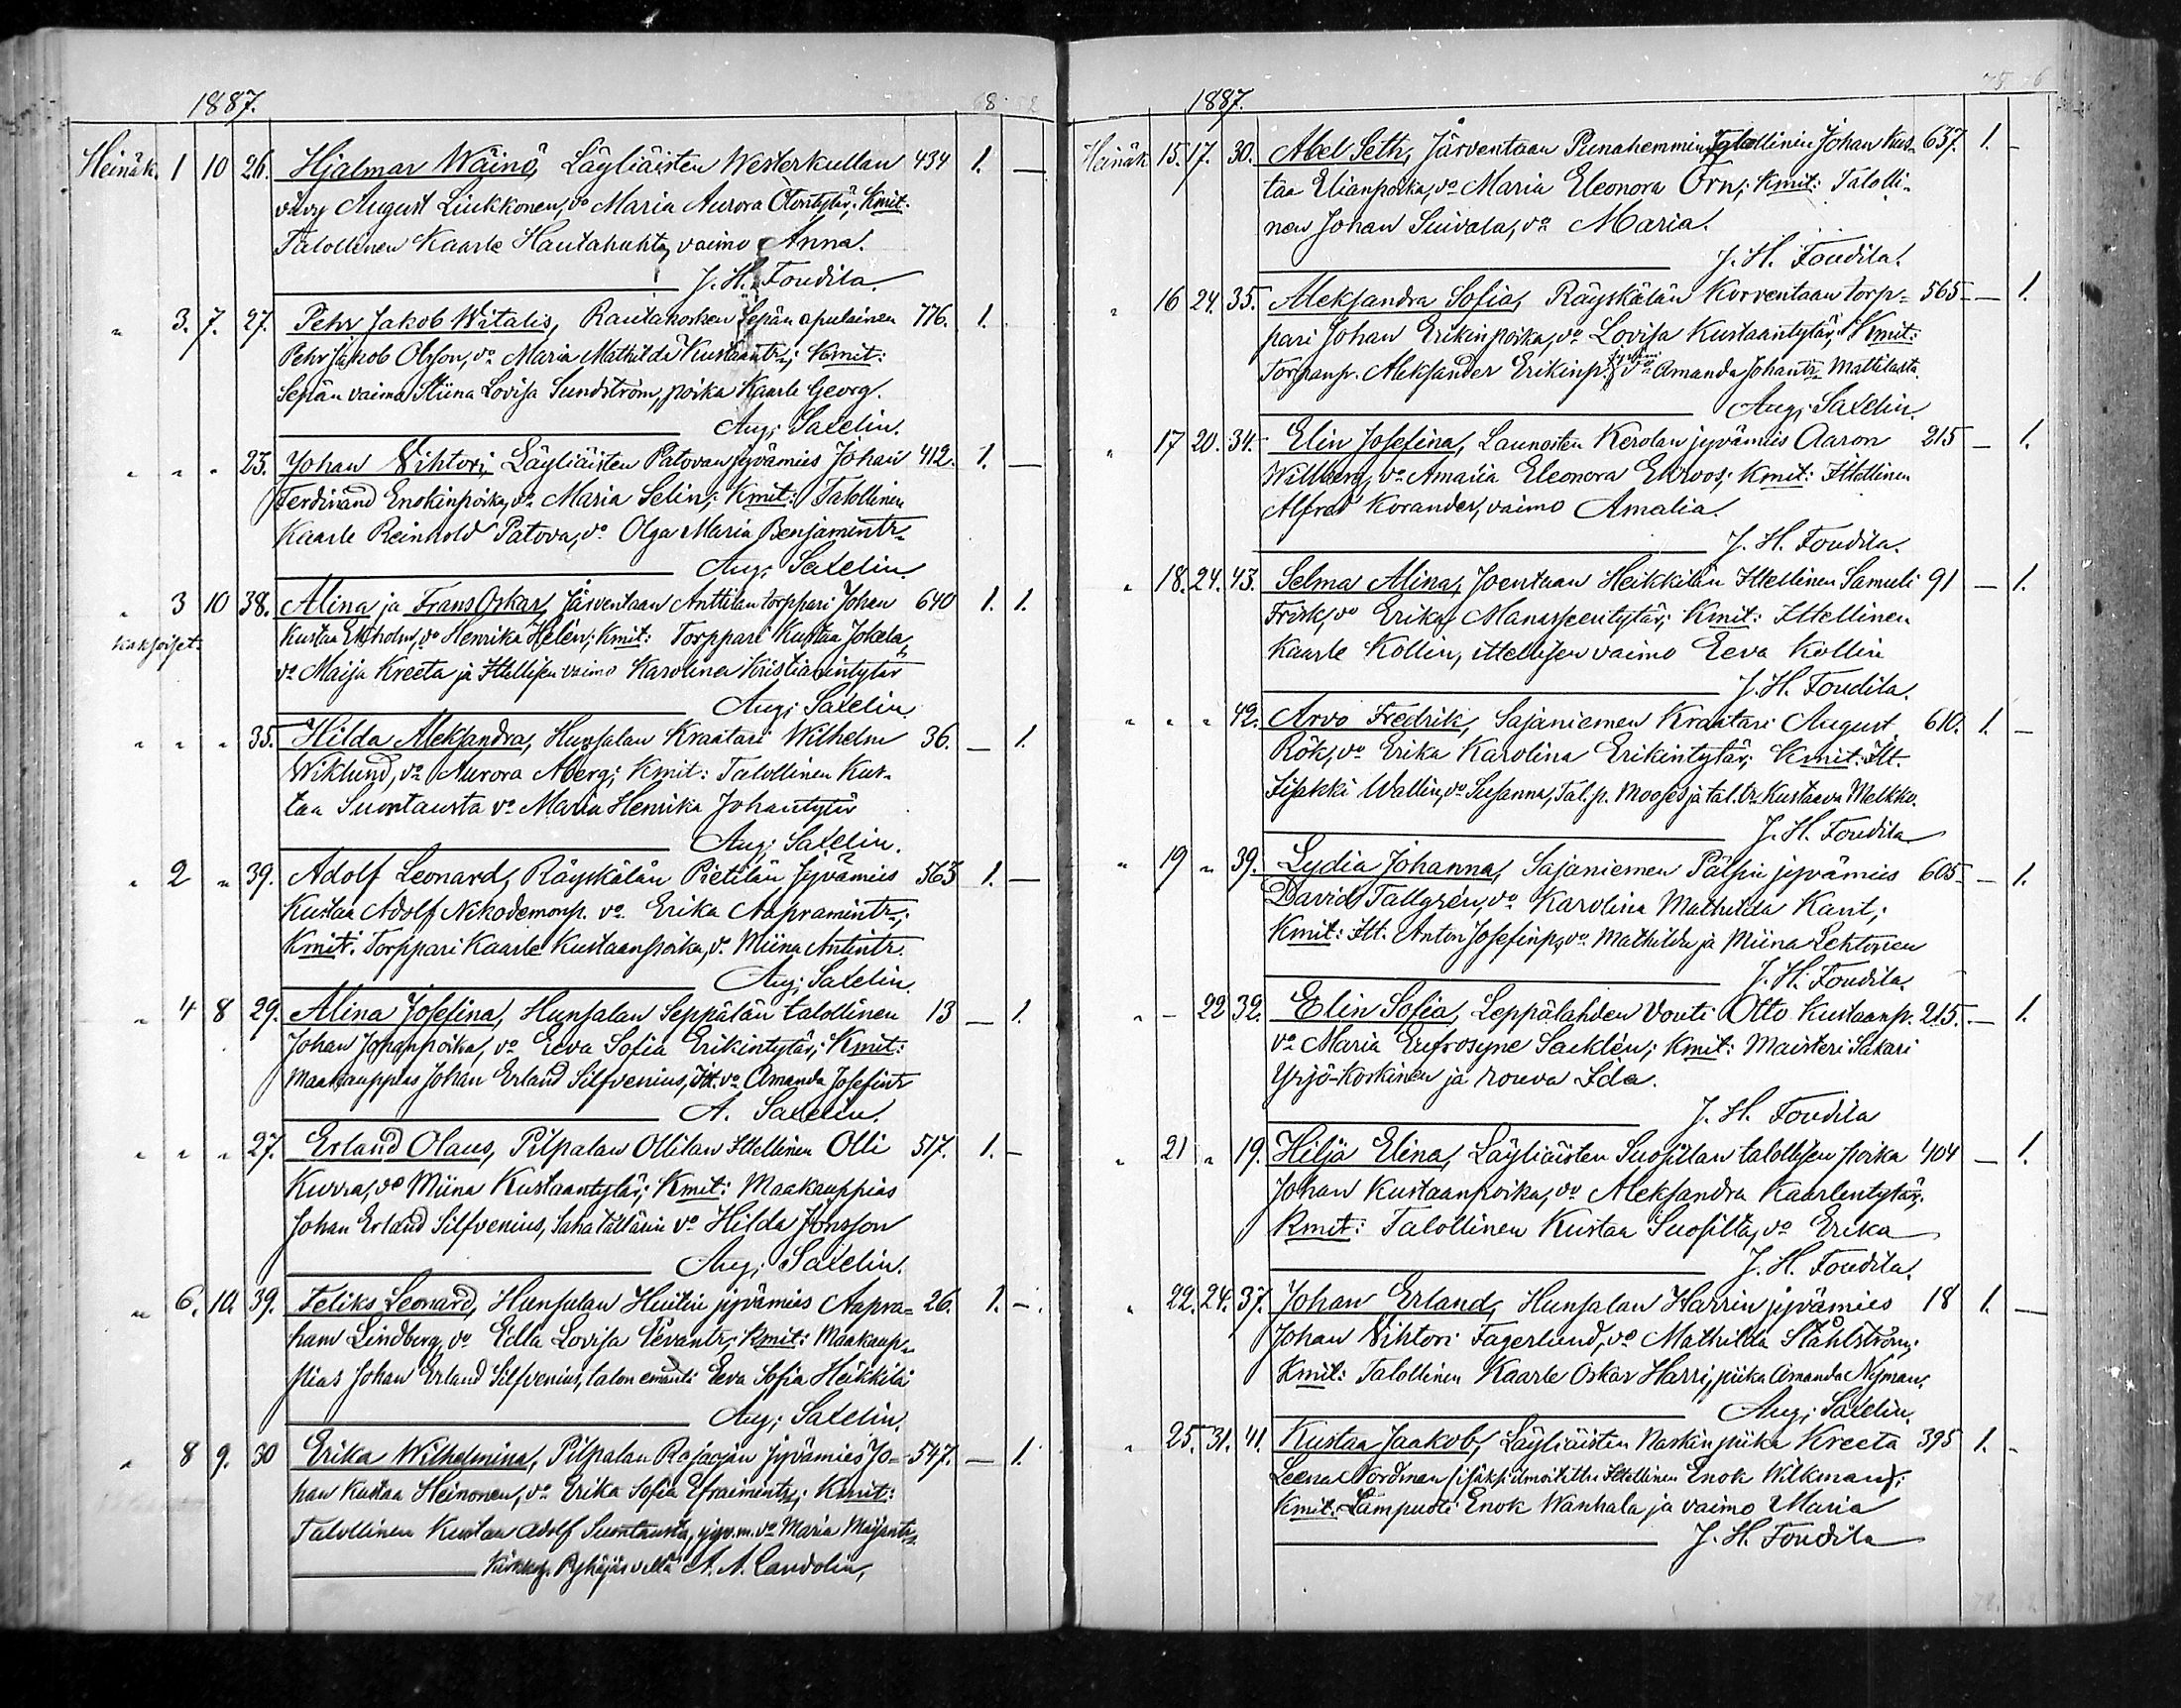 1887.
Heinäk. 1 10 26. Hjalmar Wäinö, Läyliäisten Westerkullan 434 1. —
vävy August Liukkonen, vo Maria Aurora Olontytär; Kmit:
Talollinen Kaarle Hautahuhta, vaimo Anna.
J. H. Foudila.
" 3. 7. 27. Pehr Jakob Witalis, Rautakosken Sepän apulainen 776. 1.
Pehr Jakob Olsson, vo Maria Mathilda Kustaantr; Kmit:
Sepän vaimo Stiina Lovisa Sundström, poika Kaarle Georg.
Aug. Saxelin.
" " " 23. Johan Vihtori, Läyliäisten Patovan jyvämies Johan 412. 1. —
Ferdinand Enokinpoika, vo Maria Selin; Kmit: Talollinen
Kaarle Reinhold Patova, vo Olga Maria Benjamintr.
Aug. Saxelin.
" 3 10 38. Alina ja Frans Oskar, Järventaan Anttilan torppari Johan 640 1. 1.
kaksoiset. Kustaa Ekholm, vo Henrika Helén; Kmit: Torppari Kustaa Jokela,
vo Maija Kreeta ja Itellisen vaimo Karolina Kristiantytär
Aug. Saxelin.
" " " 35. Hilda Aleksandra, Hunsalan Kraatari Wilhelm 36. — 1.
Wiklund, vo Aurora Åberg; Kmit: Talollinen Kus-
taa Suontausta vo Maria Henrika Johantytär
Aug. Saxelin.
" 2 " 39. Adolf Leonard, Räyskälän Pietilän Jyvämies 563 1. —
Kustaa Adolf Nikodemonp. vo Erika Aapramintr.;
Kmit: Torppari Kaarle Kustaanpoika, vo Miina Antintr.
Aug. Saxelin.
" 4 8 29. Alina Josefina, Hunsalan Seppälän talollinen 13 — 1.
Johan Johanpoika, vo Eeva Sofia Erikintytär; Kmit:
Maakauppias Johan Erland Silfvenius, Itt. vo Amanda Josefintr
A. Saxelin.
" " " 27. Erland Olaus, Pilpalan Ollilan Itellinen Olli 517. 1. —
Kurra, vo Miina Kustaantytär; Kmit: Maakauppias
Johan Erland Silfvenius, Sahatällärin vo Hilda Jonsson
Aug. Saxelin.
" 6. 10. 39. Feliks Leonard, Hunsalan Huitin jyvämies Aapra- 26. 1. —.
ham Lindberg, vo Edla Lovisa Eevantr; Kmit: Maakaup-
pias Johan Erland Silfvenius, talon emäntä Eeva Sofia Heikkilä
Aug. Saxelin.
" 8 9. 30 Erika Wilhelmina, Pilpalan Rajaojan Jyvämies Jo- 547. — 1.
han Kustaa Heinonen, vo Erika Sofia Efraimintr; Kmit:
Talollinen Kustaa Adolf Suontausta, jyv.m. vo Maria Maijantr,
Kirkkoh. Pyhäjärvellä A. N. Candolin,
1887.
Heinäk 15. 17. 30. Abel Seth, Järventaan Punahemmin Talollinen Johan Kus- 637. 1. —
taa Elianpoika, vo Maria Eleonora Örn; Kmit: Talolli-
nen Johan Suivala, vo Maria.
J. H. Foudila.
" 16 24. 35. Aleksandra Sofia, Räyskälän Korventaan torp- 565 — 1.
pari Johan Erikinpoika, vo Lovisa Kustaantytär; Kmit:
Torpanp. Aleksander Erikinp. vo Amanda Johantr Mattilasta.
Aug. Saxelin.
" 17 20. 34. Elin Josefina, Launosten Kerolan jyvämies Aaron 215 — 1.
Willberg, vo Amalia Eleonora Ekroos; Kmit: Itellinen
Alfred Korander, vaimo Amalia.
J. H. Foudila.
" 18. 24. 43. Selma Alina, Joentaan Heikkilän Itellinen Samuli 91 — 1.
Frisk, vo Erika Manasseentytär; Kmit: Itellinen
Kaarle Kollin, ittellisen vaimo Eeva Kollin
J. H. Foudila.
" " " 42. Arvo Fredrik, Sajaniemen Kraatari August 610. 1. —
Rök, vo Erika Karolina Erikintytär; Kmit: Itt.
Iisakki Wallin, vo Susanna, Tal. p. Mooses ja tal. tr. Kustaava Melkko.
J. H. Foudila
" 19 " 39. Lydia Johanna, Sajaniemen Pälsin jyvämies 605 — 1.
David Tallgrén, vo Karolina Mathilda Kant;
Kmit: Itt. Anton Josefinp, vo Mathilda ja Miina Lehtonen
J. H. Foudila.
" — 22 32. Elin Sofia, Leppälahden Vouti Otto Kustaanp. 215. — 1.
vo Maria Eufrosyne Sacklén; Kmit: Maisteri Sakari
Yrjö-Koskinen ja rouva Ida.
J. H. Foudila
" 21 " 19. Hilja Elina, Läyliäisten Suosillan talollisen poika 404 — 1.
Johan Kustaanpoika, vo Aleksandra Kaarlentytär;
Kmit: Talollinen Kustaa Suosilta, vo Erika
J. H. Foudila.
" 22. 24. 37. Johan Erland, Hunsalan Harrin jyvämies 18 1. —
Johan Vihtori Fagerlund, vo Mathilda Ståhlström;
Kmit: Talollinen Kaarle Oskar Harri, piika Amanda Nyman.
Aug. Saxelin.
" 25. 31. 41. Kustaa Jaakob, Läyliäisten Naskin piika Kreeta 395 1. —
Leena Nordman (isäksi ilmoitettu Itellinen Enok Wikman);
Kmit: Lampuoti Enok Wanhala ja vaimo Maria
J. H. Foudila